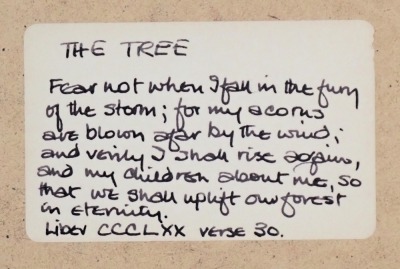 THE TREE
Fear not when I fall in the fury
of the storm; for my acorns
are blown afar by the wind;
and verily I shall rise again,
and my children about me, so
that we shall uplift our forest
in eternity.
Liber CCCLXX verse 30.